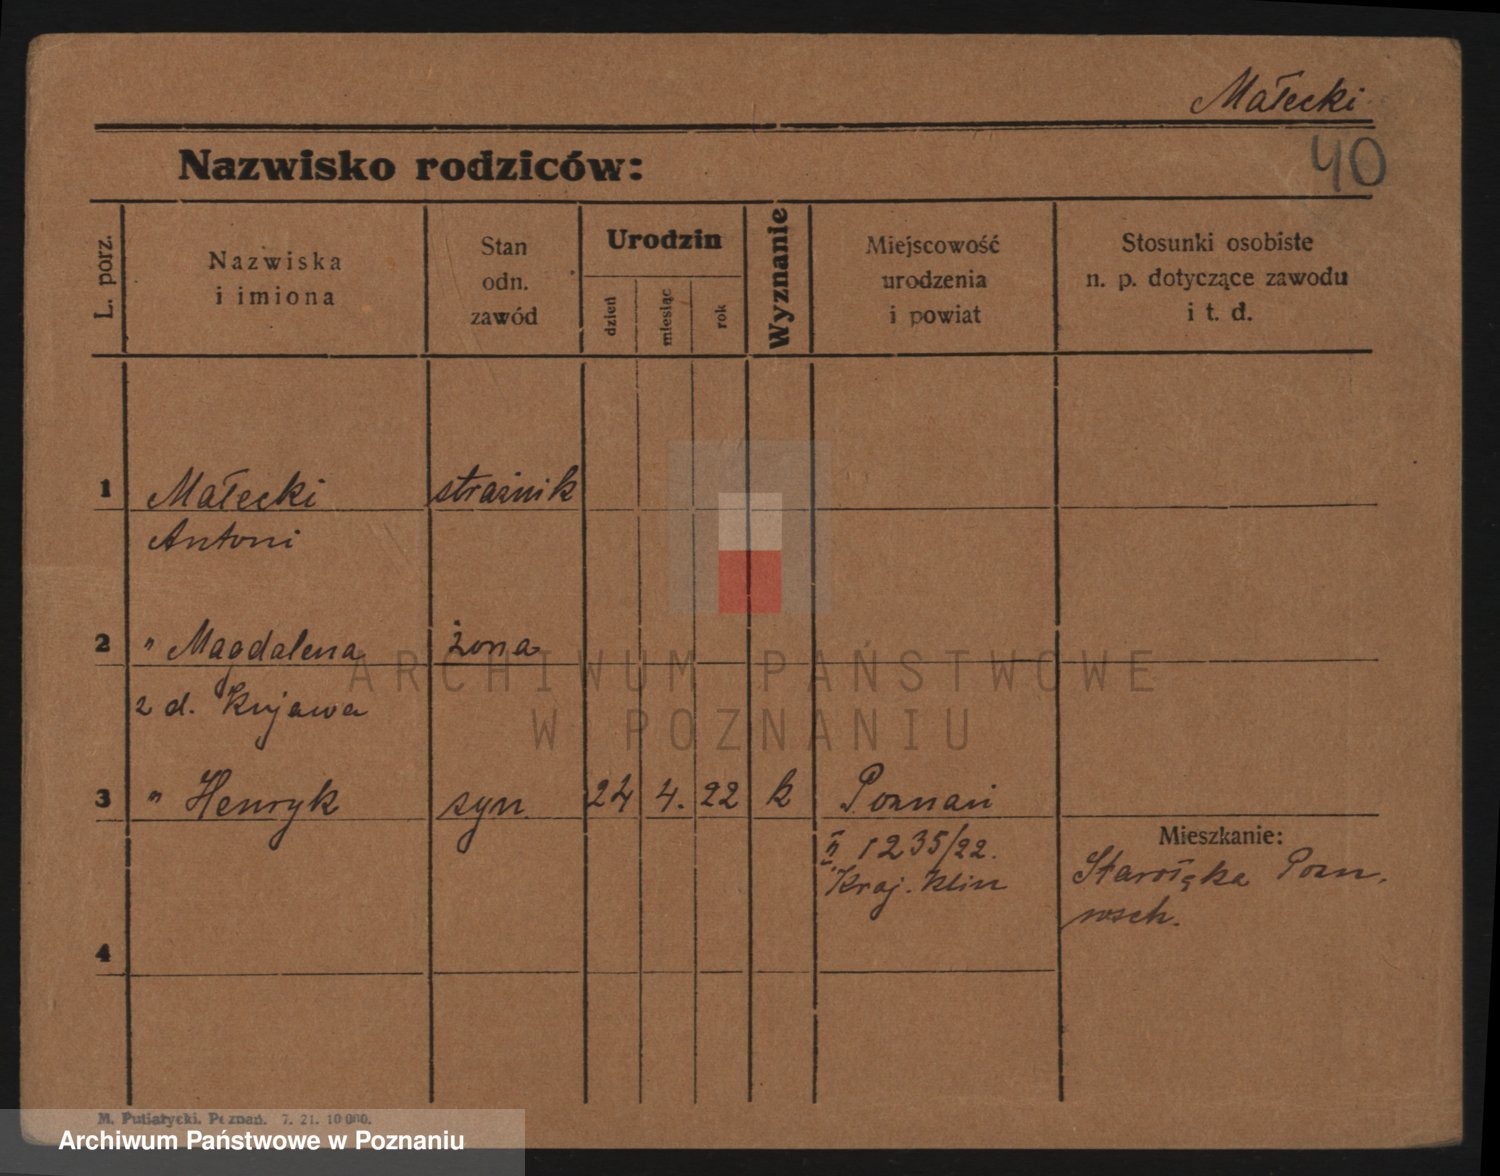 Małecki
40
Nazwisko rodziców:
L. porz.
Nazwiska
i imiona
Stan
odn.
zawód
Urodzin
dzień
miesiąc
rok
Wyznanie
Miejscowość
urodzenia
i powiat
Stosunki osobiste
n. p. dotyczące zawodu
i t. d.
1 Małecki strażnik
Antoni
2 " Magdalena żona
z d. Kujawa
3 " Henryk syn 24 4. 22 k Poznań
II 1235/22.
Kraj. Klin
Mieszkanie:
Starołęka Pozn.
wsch.
4
ARCHIWUM PAŃSTWOWE
W POZNANIU
M. Putiatycki, Poznań. 7. 21. 10 000.
Archiwum Państwowe w Poznaniu